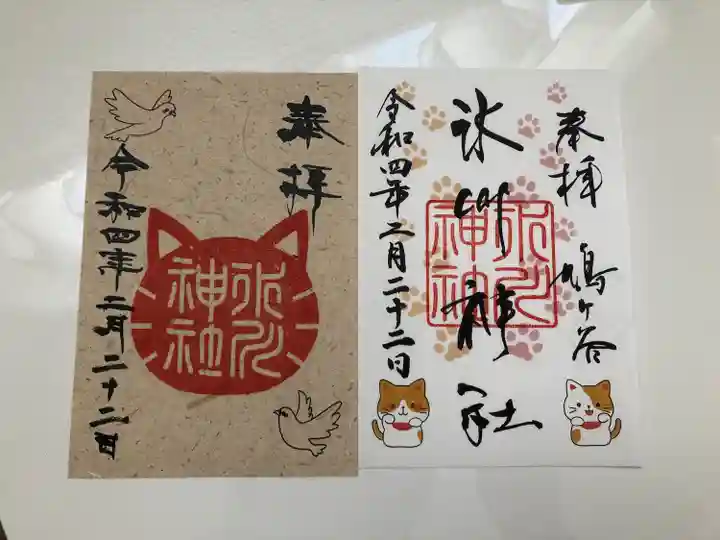 奉拝
氷川
神社
令和四年二月二十二日
奉拝 鳩ヶ谷
氷川神社
氷川
神社
令和四年二月二十二日